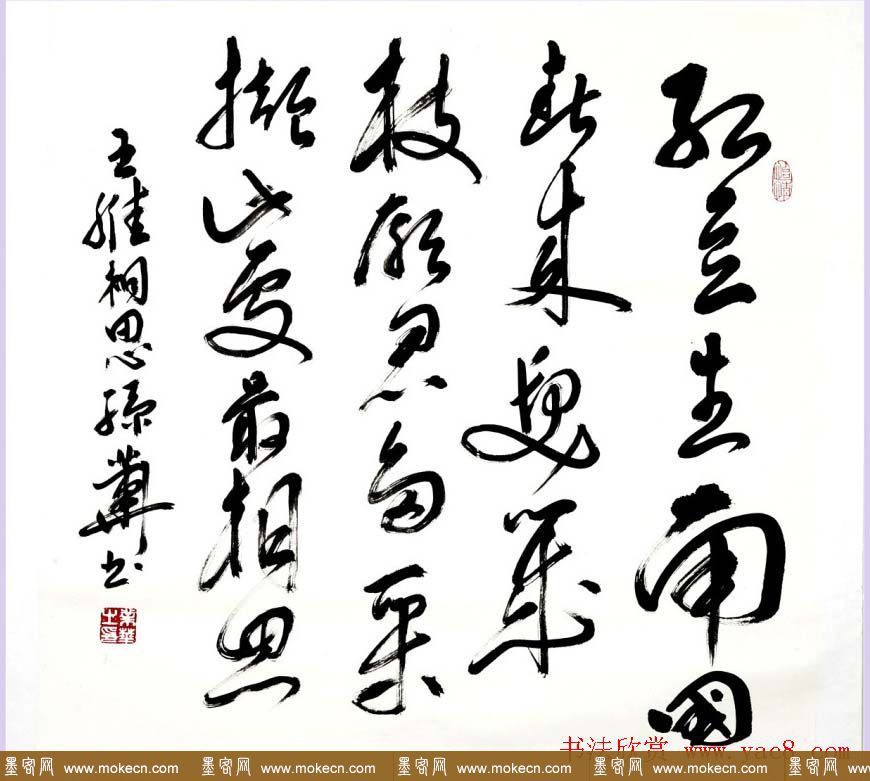 紅豆生南國
春来發幾
枝願君多采
擷此最相思
王維相思孫華书
书法欣赏 www.yac8.com
墨客网 www.mokecn.com 墨客网 www.mokecn.com 墨客网 www.mokecn.com 墨客网 www.mokecn.com 墨客网